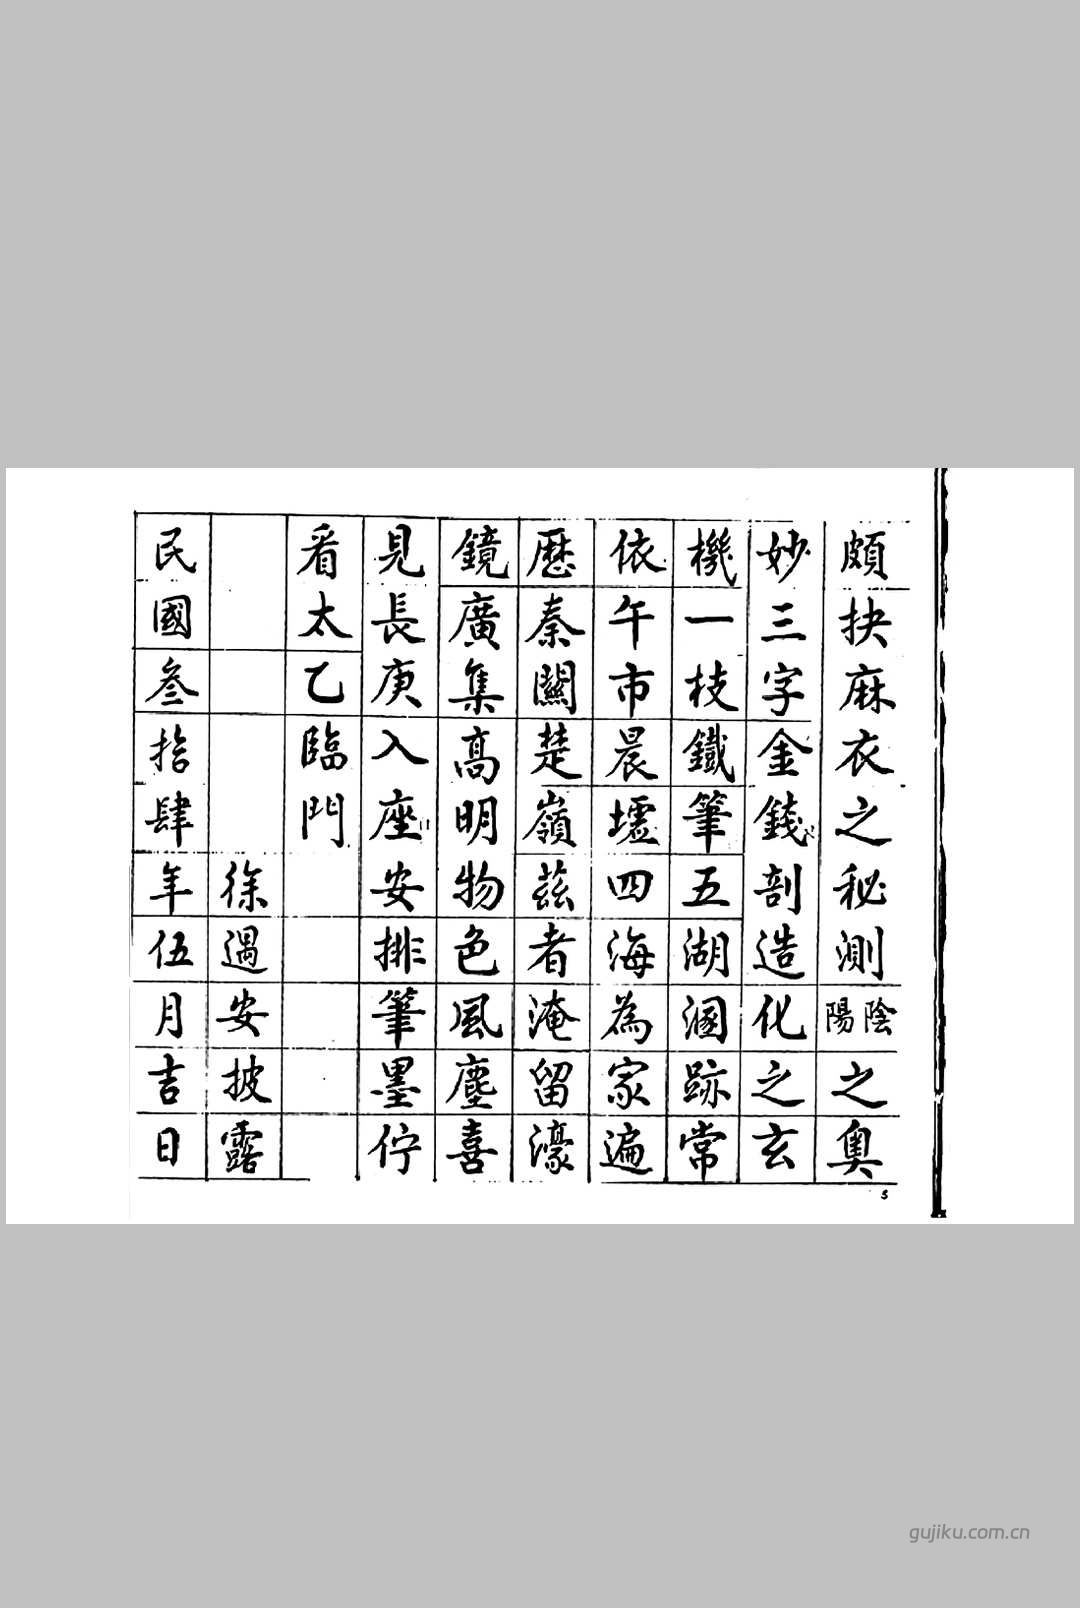 頗抉麻衣之秘測陰陽之奧
妙三字金錢剖造化之玄
機一枝鐵筆五湖溷跡常
依午市晨墟四海為家遍
歷秦關楚嶺茲者淹留濠
鏡廣集高明物色風塵喜
見長庚入座安排筆墨佇
看太乙臨門
徐遇安披露
民國叁拾肆年伍月吉日
5
gujiku.com.cn